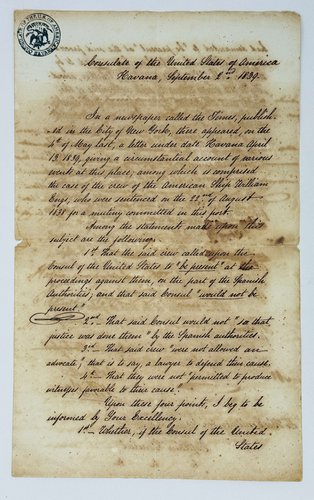 Consulate of the United States of America
Havana, September 2nd 1839.
In a newspaper called the Times, publish-
ed in the City of New York, there appeared, on the
4th of May last, a letter under date Havana April
13 1839, giving a circumstantial account of various
events at this place; among which is comprised
the case of the crew of the American Ship William
Engs, who were sentenced on the 22nd of August
1838 for a mutiny committed in this port.
Among the statements made upon this
subject are the following.
1st That the said crew called upon the
Consul of the United States to "be present" at the
proceedings against them, on the part of the Spanish
Authorities; and that said Consul "would not be
present."
2nd That said Consul would not "so that
justice was done them" by the Spanish authorities.
3rd That said crew "were not allowed an
advocate," that is to say, a lawyer to defend their cause.
4th That they were not "permitted to produce
witnesses favorable to their cause."
Upon these four points, I beg to be
informed by Your Excellency.
1st Whether, if the Consul of the United
States